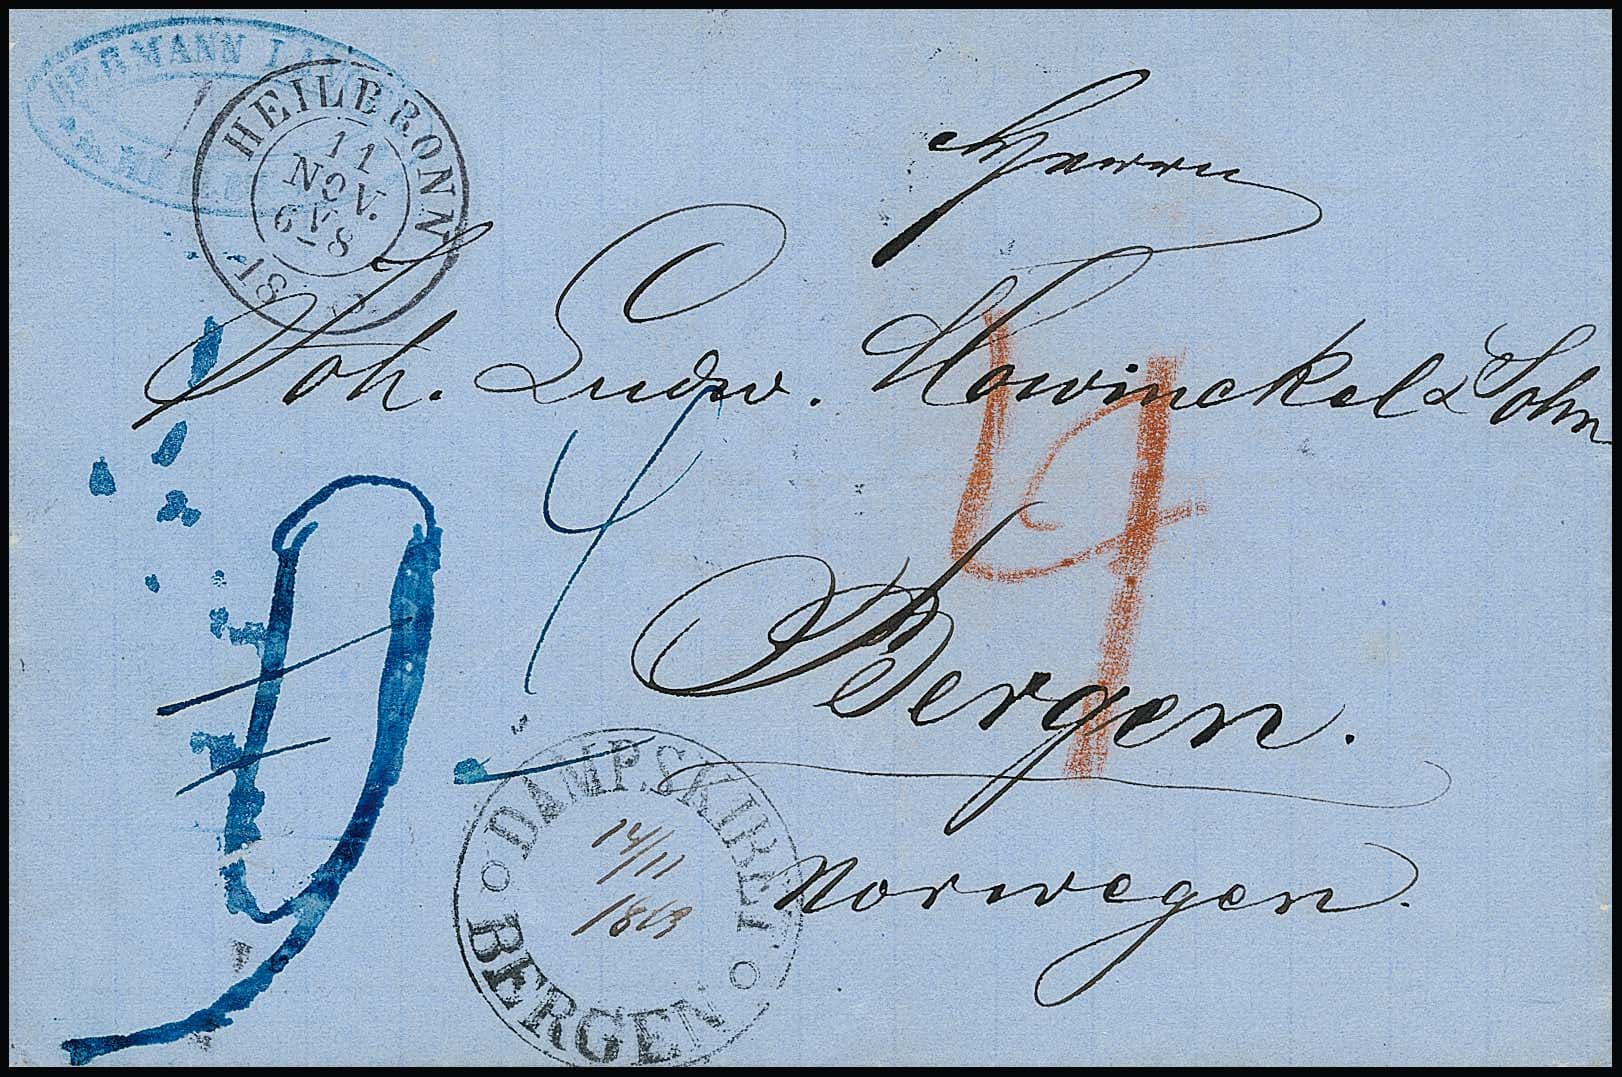 HERMANN
HEILBRONN
11
NOV.
6 V. - 8
18
Herrn
Joh. Ludw. Mowinckel & Sohn
4
Bergen.
Norwegen.
DAMPSKIBET
14/11
1863
BERGEN